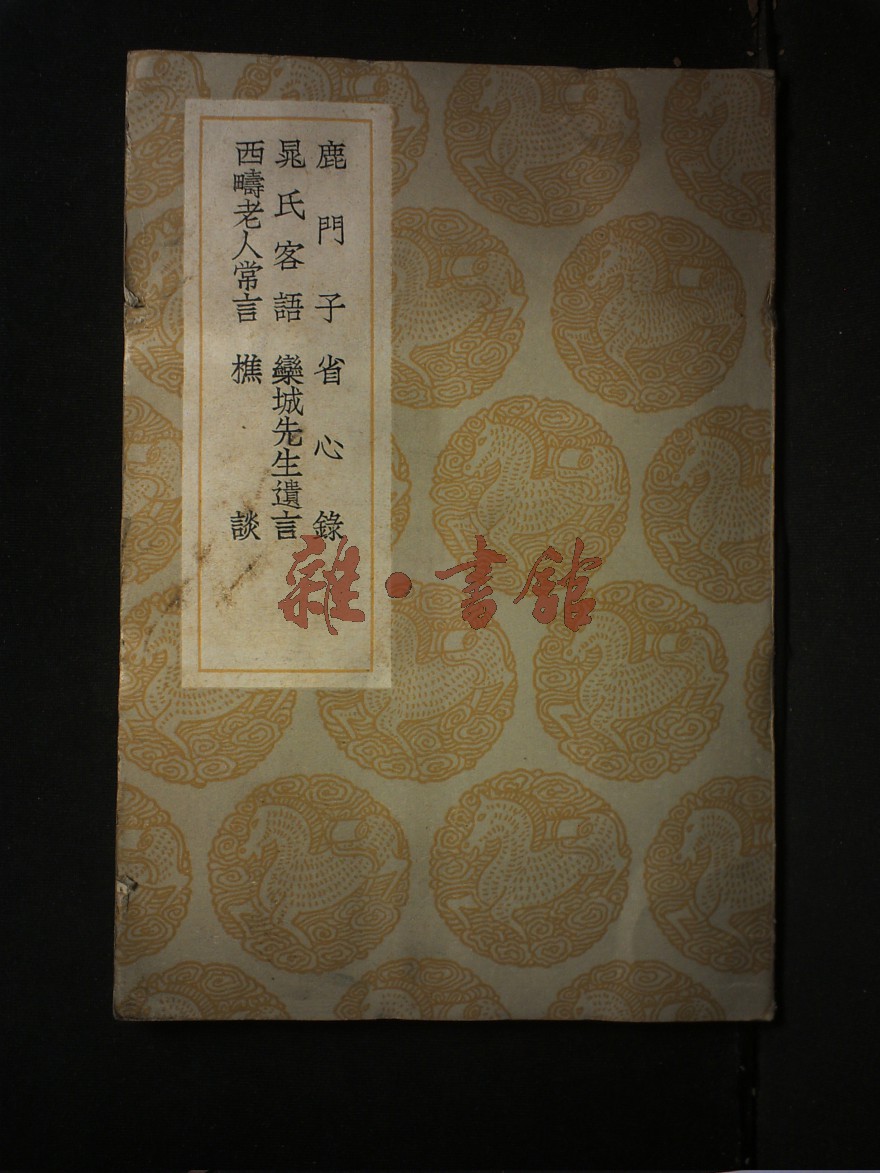 鹿門子省心錄
晁氏客語 欒城先生遺言
西疇老人常言 樵談
雜·書館